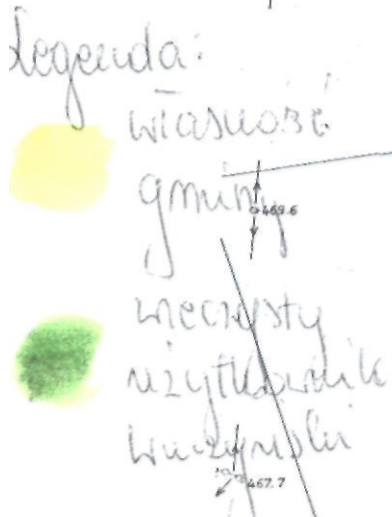 Legenda:
własność
gminy
469.6
wieczysty
użytkownik
467.7